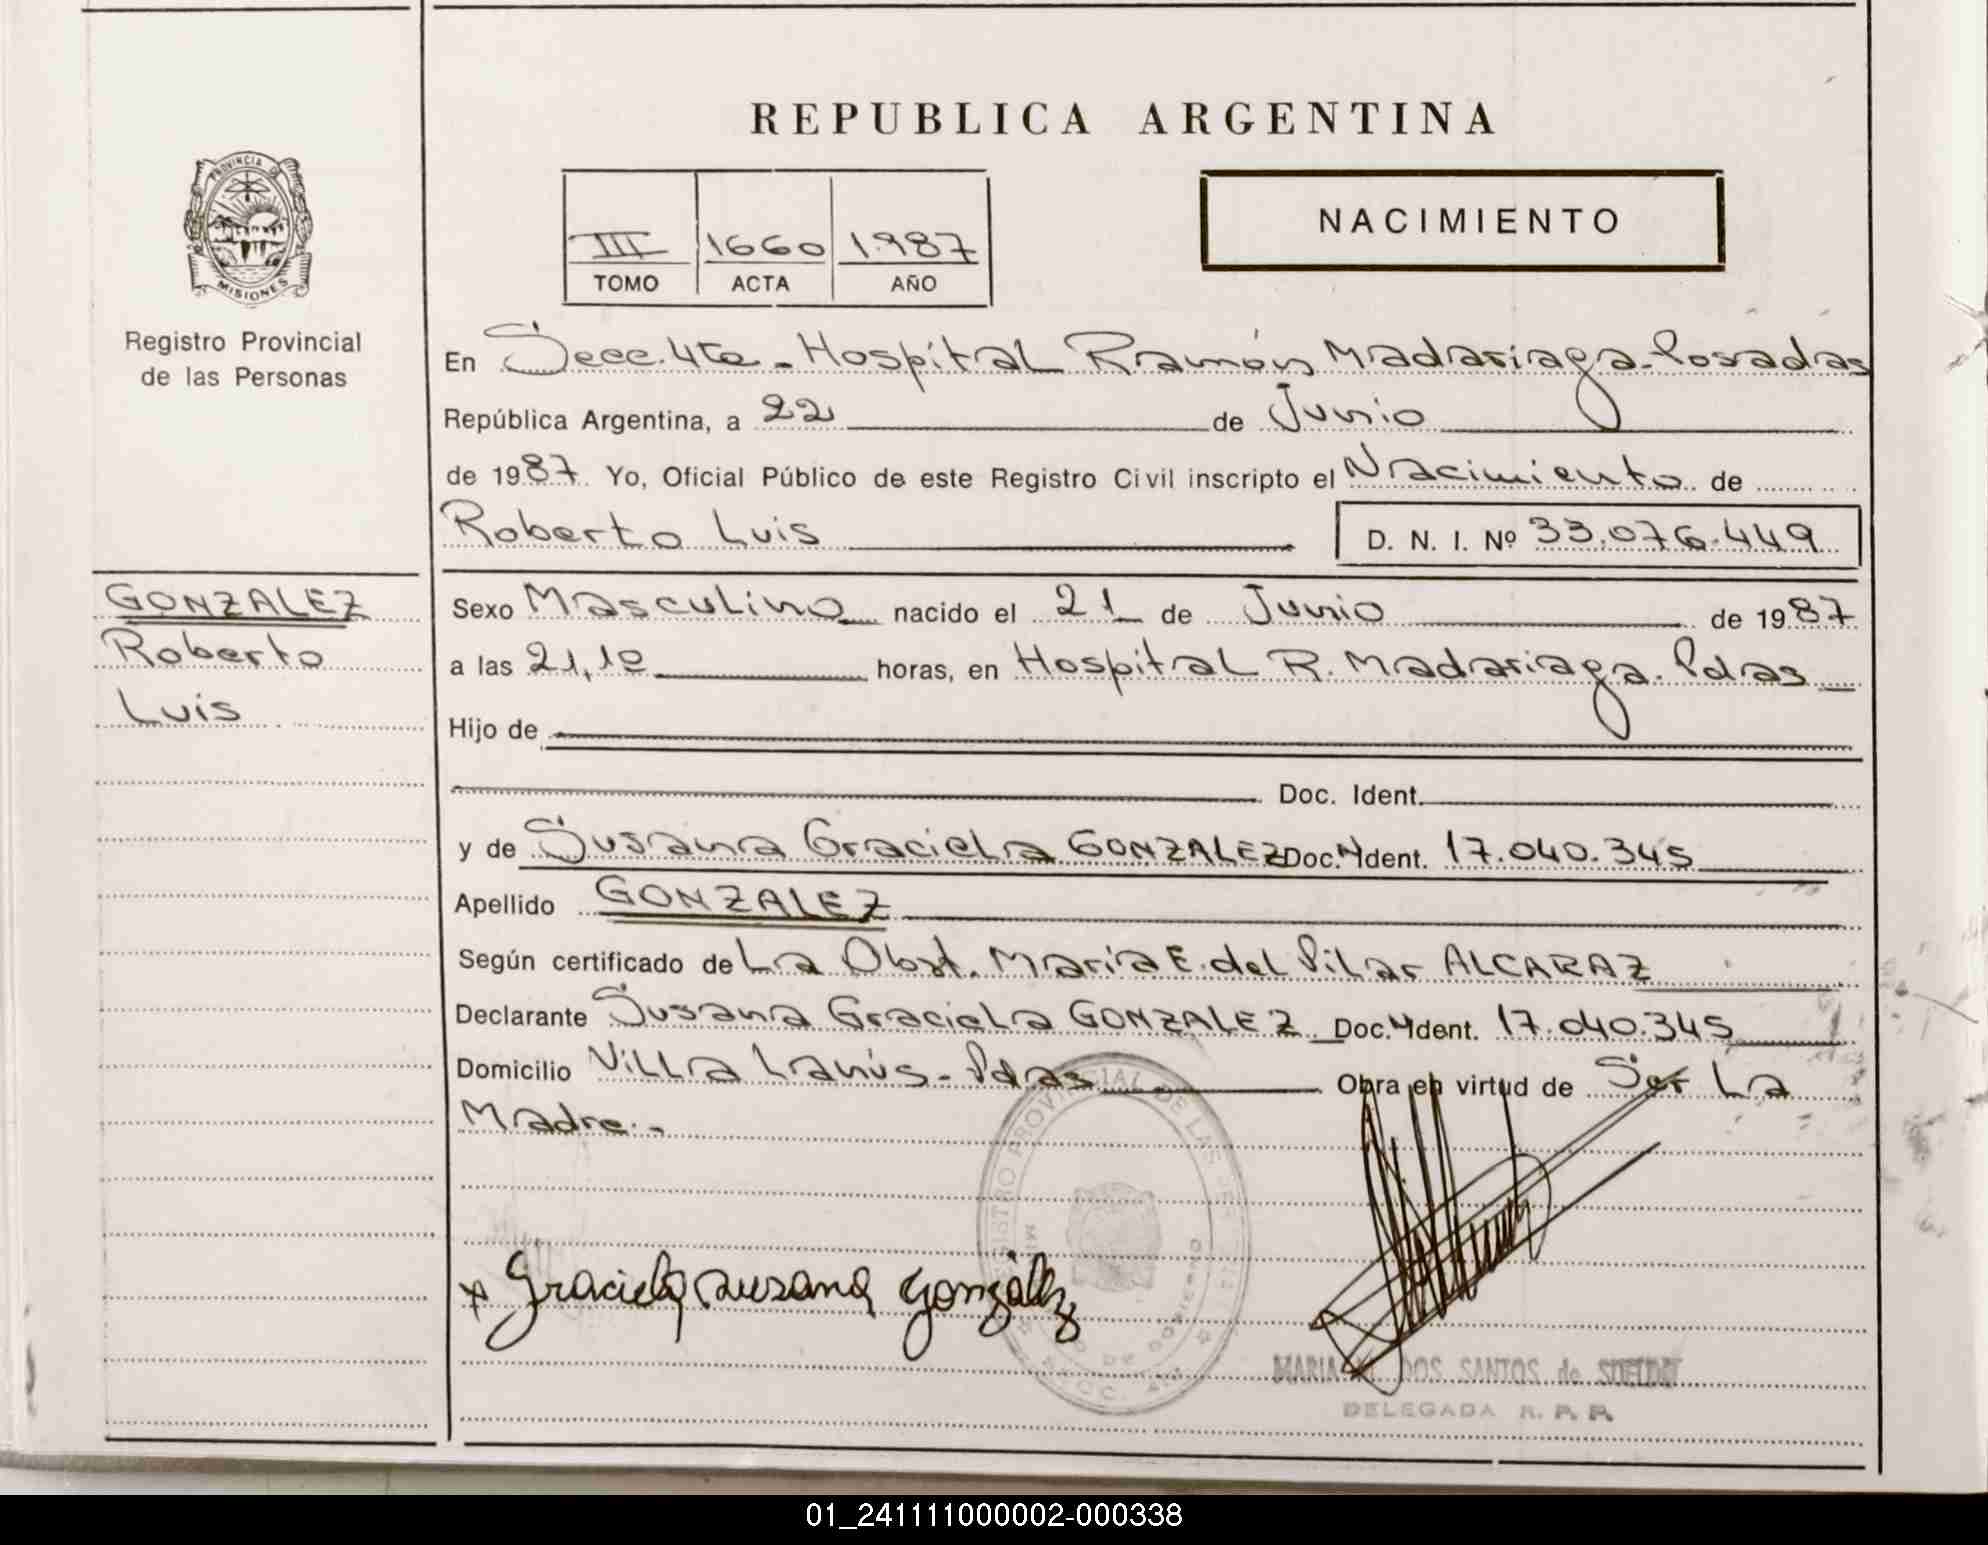 REPUBLICA ARGENTINA
PROVINCIA DE
MISIONES
Registro Provincial
de las Personas
III 1660 1.987
TOMO ACTA AÑO
NACIMIENTO
En Secc. 4ta - Hospital Ramón Madariaga - Posadas
República Argentina, a 22 de Junio
de 1987. Yo, Oficial Público de este Registro Civil inscripto el Nacimiento de
Roberto Luis D. N. I. Nº 33.076.449
GONZALEZ
Roberto
Luis
Sexo Masculino nacido el 21 de Junio de 1987
a las 21,10 horas, en Hospital R. Madariaga. Pdas
Hijo de
Doc. Ident.
y de Susana Graciela GONZALEZ Doc. Ident. 17.040.345
Apellido GONZALEZ
Según certificado de La Obst. María E. del Pilar ALCARAZ
Declarante Susana Graciela GONZALEZ Doc. Ident. 17.040.345
Domicilio Villa Lanús - Pdas Obra en virtud de Ser La
Madre.-
REGISTRO PROVINCIAL DE LAS
x Graciela Susana González
MARIA DOS SANTOS de
DELEGADA R. P. P.
01_241111000002-000338